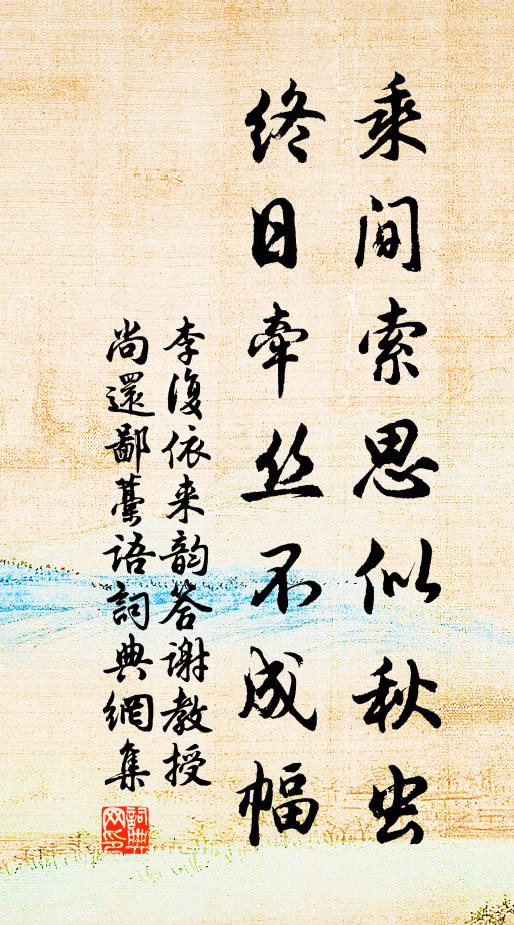 乘间索思似秋虫
终日牵丝不成幅
李復依来韵答谢教授
尚還鄙藁语詞典網集
詞典网印